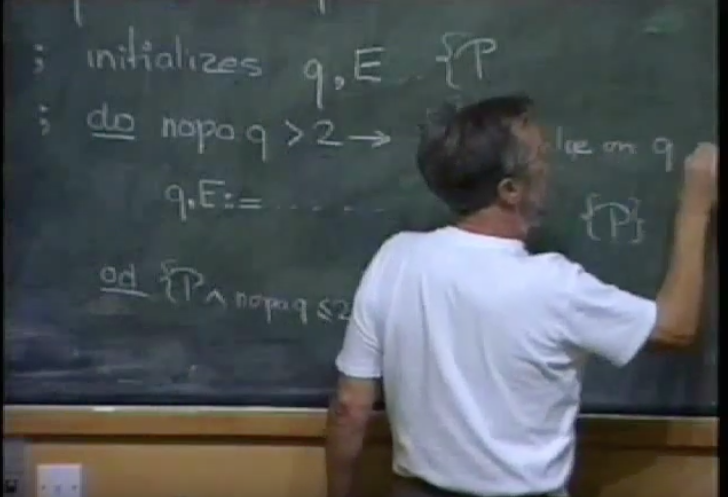 ; initializes q,E {P
; do nopo q > 2 → on q
q,E := ...... {P}
od {P ∧ nopo q ≤ 2